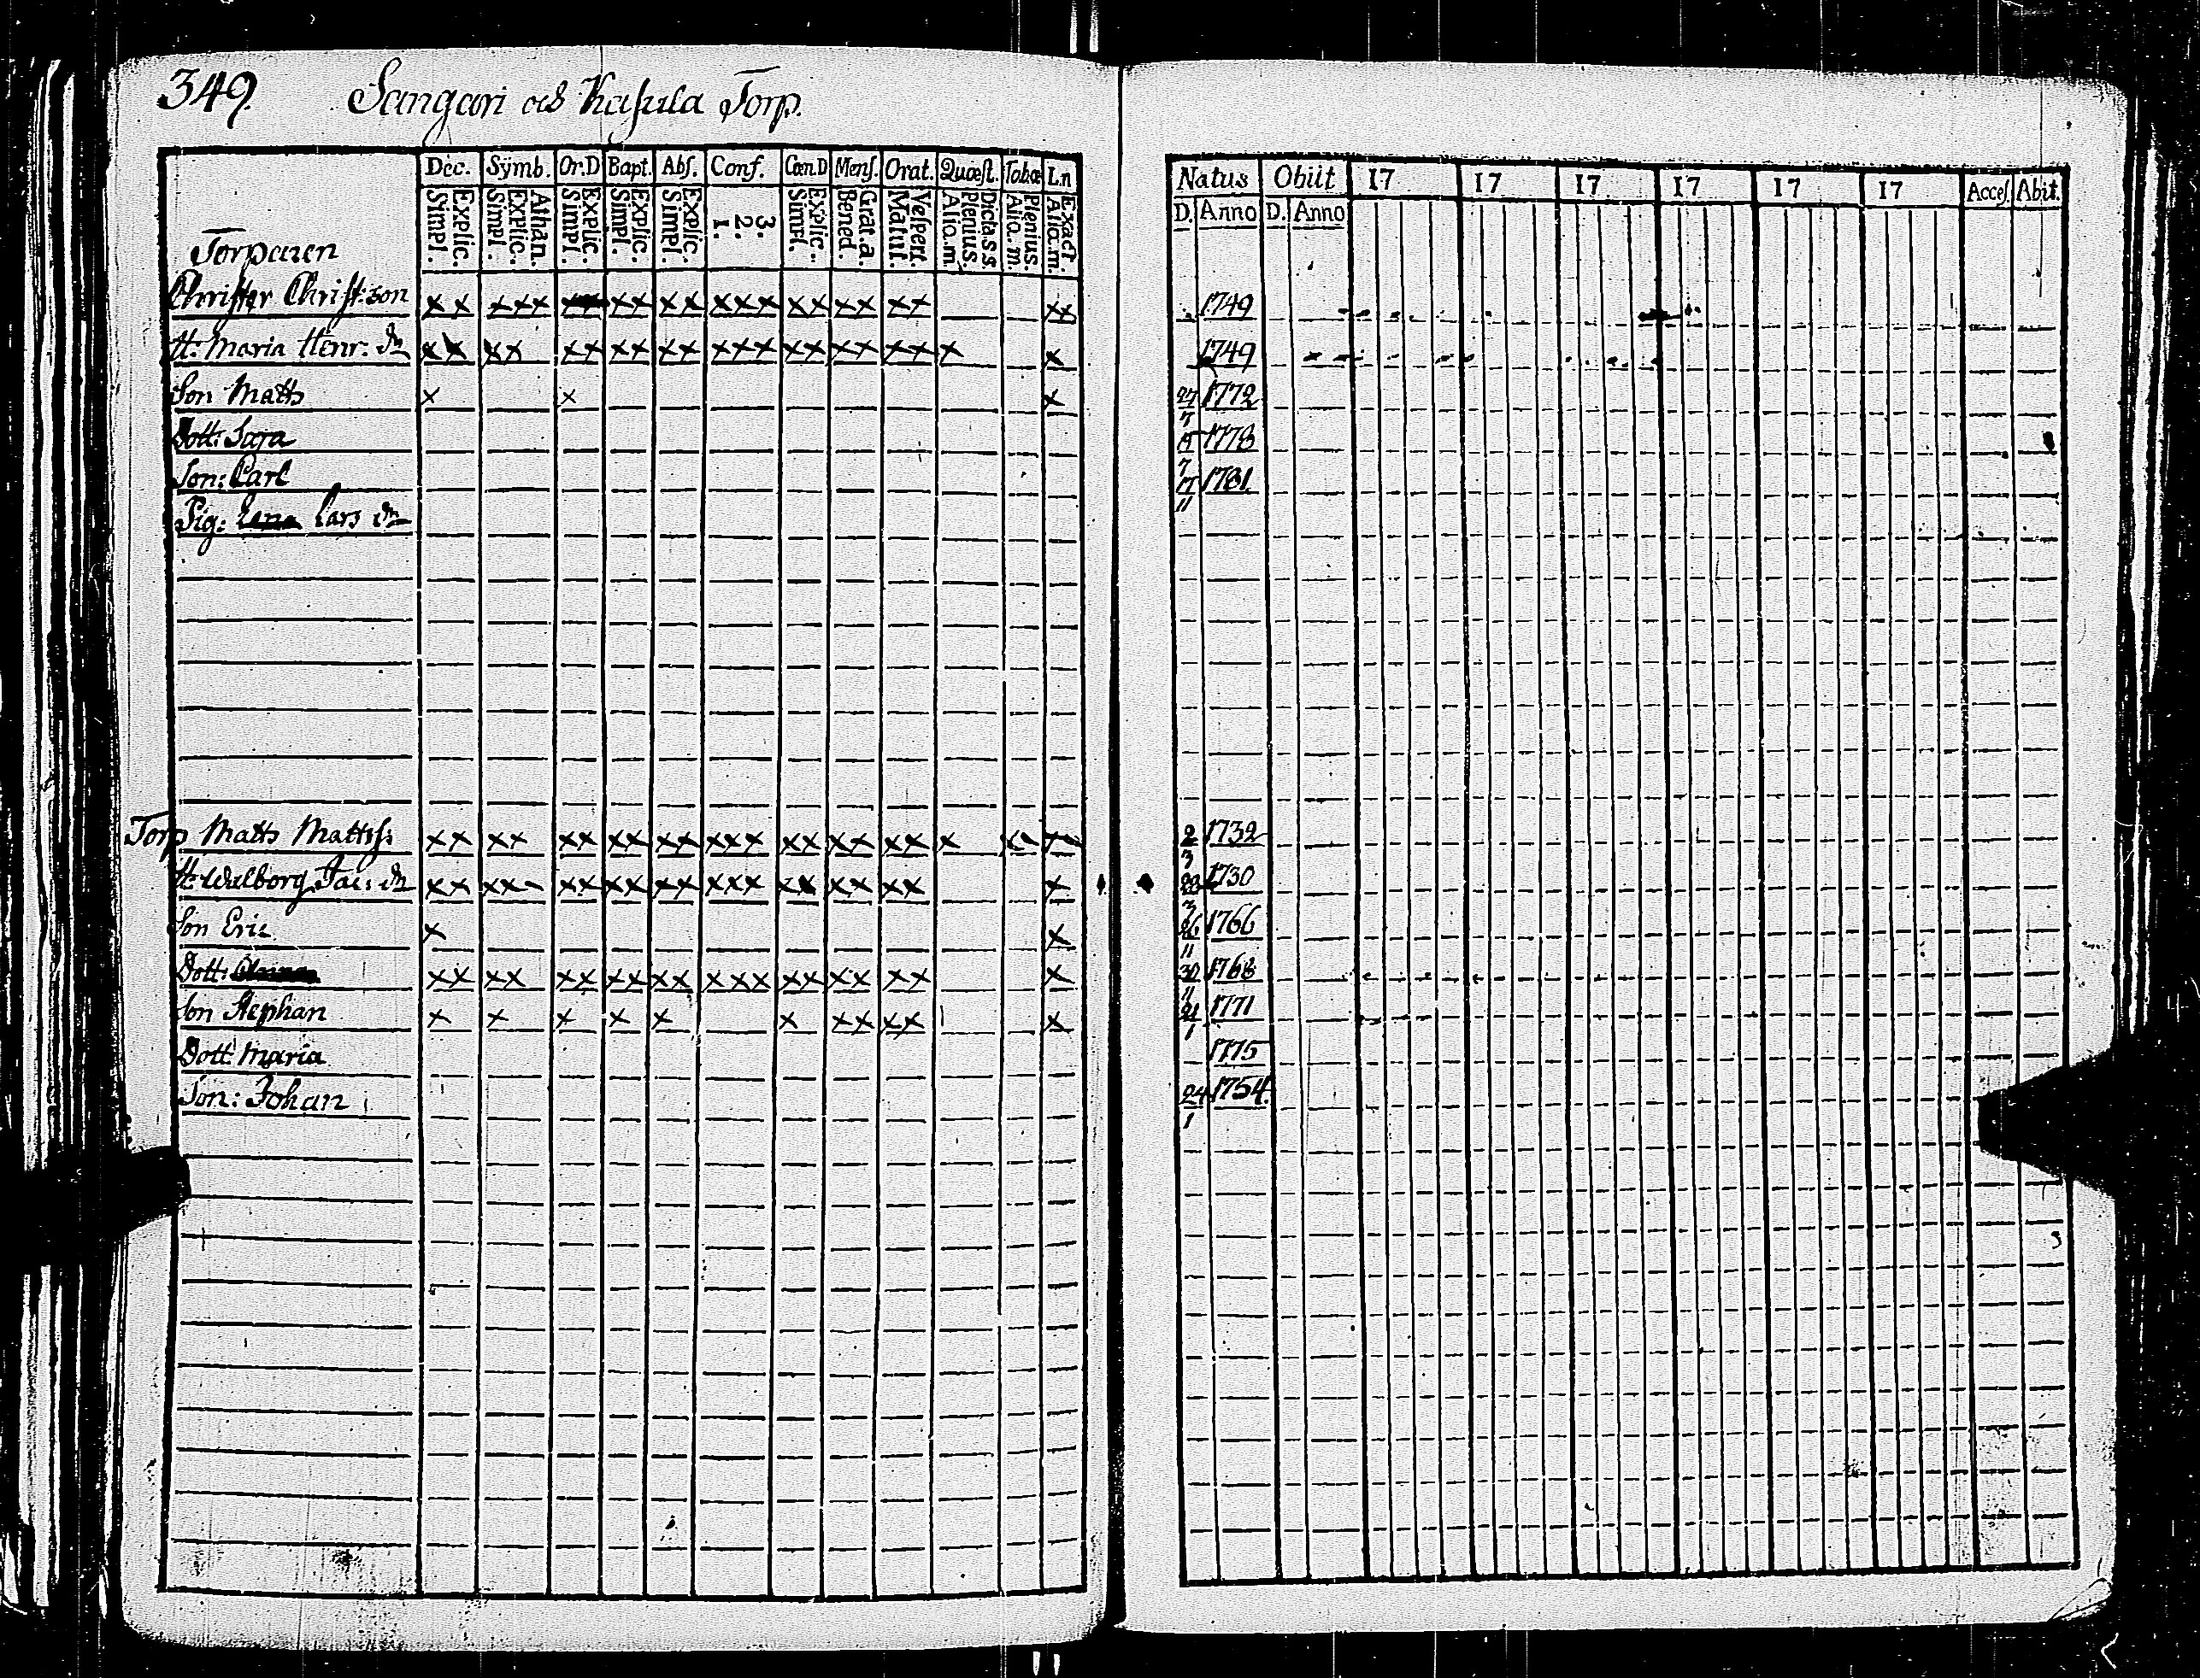 349. Sangari och Kasula Torp.
Dec. Symb. Or.D Bapt. Abſ. Conf. Cœn.D Menſ. Orat. Quæſt. Tabœ L.n
Simpl. Explic. Simpl. Explic. Athan. Simpl. Explic. Simpl. Explic. Simpl. Explic. 1. 2. 3. Simpl. Explic. Bened. Grat.a. Matut. Veſpert. Alio.m Plenius. Dicta.s s. Alio.m. Plenius. Alio.m. Exact
Natus Obiit 17 17 17 17 17 17 Acceſ. Abiit.
D. Anno D. Anno
Torparen
Christer Christ:son x x x x x x x x x x x x x x x x x x x x x 1749
H: Maria Henr. dr x x x x x x x x x x x x x x x x x x x x x 1749
Son Matts x x x 27/7 1772
Dott: Sara 1778
Son: Carl 17/11 1781
Pig: Lars dr
Torp Matts Matts: x x x x x x x x x x x x x x x x x x x x x x x 2/3 1732
H: Walborg Jac: dr x x x x x x x x x x x x x x x x x x x 28/3 1730
Son Eric x x 26/11 1766
Dott: x x x x x x x x x x x x x x x x x x x x 30/11 1768
Son Stephan x x x x x x x x x x x 21/1 1771
Dott Maria 1775
Son: Johan 24/1 1754.